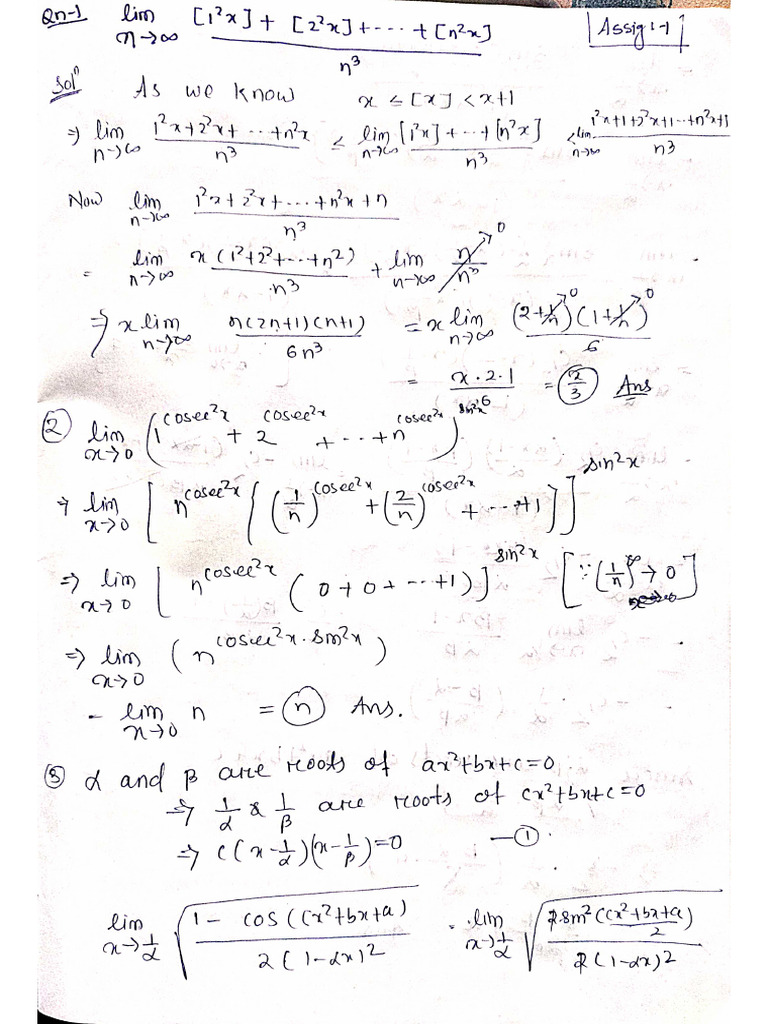 Qn-1 lim n→∞ [1²x] + [2²x] + ... + [n²x] / n³ Assig:-1
Solⁿ As we know x ≤ [x] < x+1
⇒ lim n→∞ 1²x+2²x+ ... +n²x / n³ ≤ lim n→∞ [1²x]+...+[n²x] / n³ < lim n→∞ 1²x+1+2²x+1...+n²x+1 / n³
Now lim n→∞ 1²x+2²x+...+n²x+n / n³
= lim n→∞ x(1²+2²+...+n²) / n³ + lim n→∞ n / n³ → 0
⇒ x lim n→∞ n(2n+1)(n+1) / 6n³ = x lim n→∞ (2+1/n →0)(1+1/n →0) / 6
= x·2·1 / 6 = x/3 Ans
② lim x→0 (1^cosec²x + 2^cosec²x + ... + n^cosec²x)^sin²x
⇒ lim x→0 [n^cosec²x {(1/n)^cosec²x + (2/n)^cosec²x + ... +1}]^sin²x
⇒ lim x→0 [n^cosec²x (0+0+...+1)]^sin²x [∵ (1/n)^∞ → 0]
⇒ lim x→0 (n^cosec²x·sin²x)
- lim x→0 n = n Ans.
③ α and β are roots of ax²+bx+c=0
⇒ 1/α & 1/β are roots of cx²+bx+c=0
⇒ c(x-1/α)(x-1/β)=0 —①
lim x→1/α √(1- cos(cx²+bx+a) / 2(1-αx)²) = lim x→1/α √(2sin²(cx²+bx+a / 2) / 2(1-αx)²)